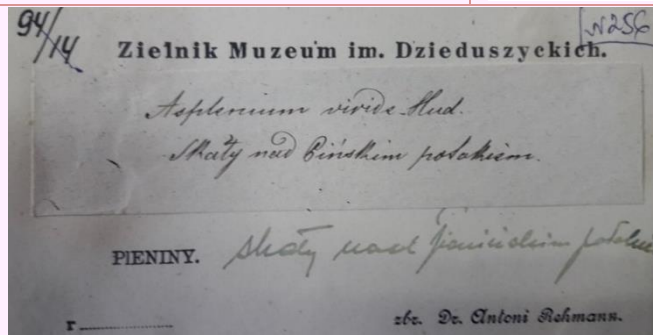 94/14
N256
Zielnik Muzeum im. Dzieduszyckich.
Asplenium viride Hud.
Skały nad Pińskim potokiem.
PIENINY. skały nad pienińskim
r
zbr. Dr. Antoni Rehmann.